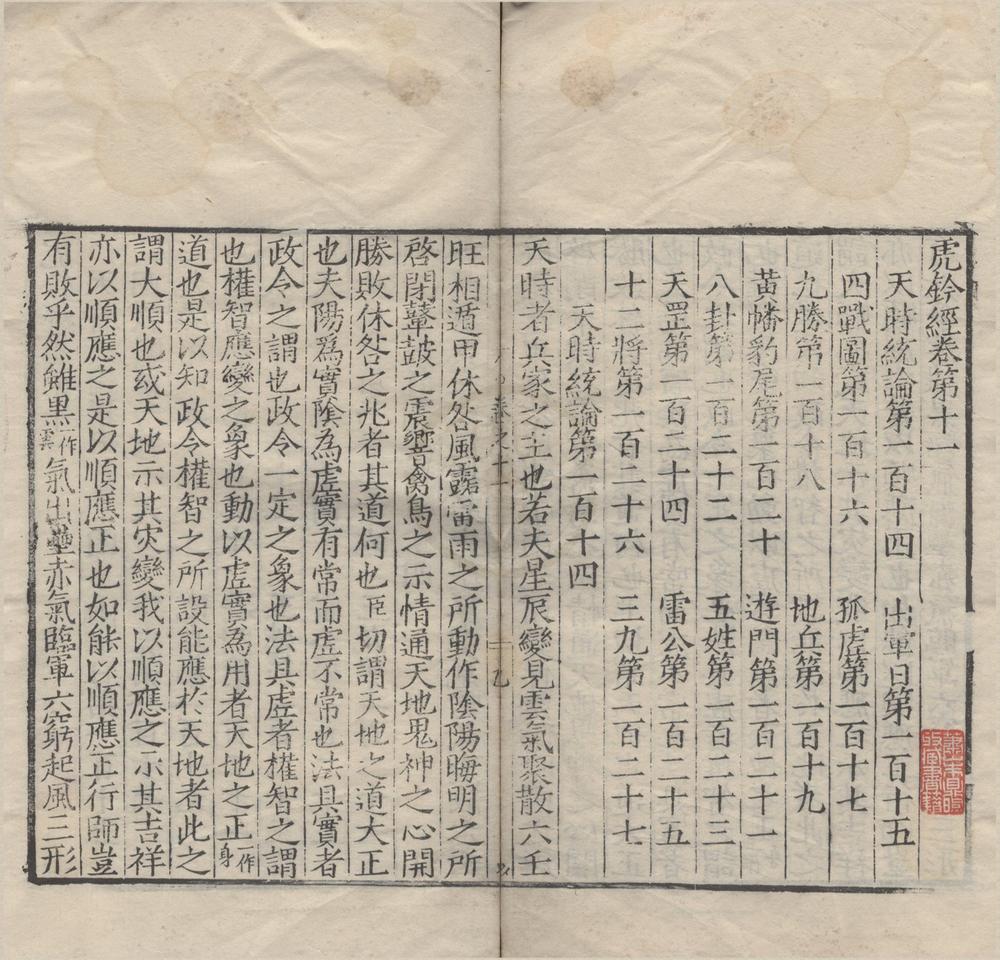 虎鈐經卷第十一
天時統論第一百十四 出軍日第一百十五
四戰圖第一百十六 孤虛第一百十七
九勝第一百十八 地兵第一百十九
黃幡豹尾第一百二十 遊門第一百二十一
八卦第一百二十二 五姓第一百二十三
天罡第一百二十四 雷公第一百二十五
十二將第一百二十六 三九第一百二十七
天時統論第一百十四
天時者兵家之主也若夫星辰變見雲氣聚散六壬
旺相遁甲休咎風露雷雨之所動作陰陽晦明之所
啓閉鼙鼓之震響禽鳥之示情通天地鬼神之心開
勝敗休咎之兆者其道何也臣切謂天地之道大正
也夫陽爲實陰為虛實有常而虛不常也法具實者
政令之謂也政令一定之象也法具虛者權智之謂
也權智應變之象也動以虛實為用者天地之正一作身
道也是以知政令權智之所設能應於天地者此之
謂大順也或天地示其灾變我以順應之示其吉祥
亦以順應之是以順應正也如能以順應正行師豈
有敗乎然雖黑一作雲氣出壘赤氣臨軍六窮起風三形